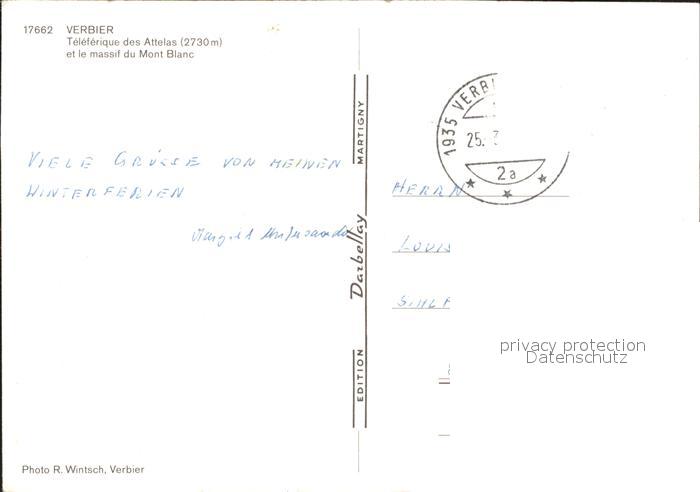 17662 VERBIER
Téléférique des Attelas (2730 m)
et le massif du Mont Blanc
VIELE GRÜSSE VON MEINEN
WINTERFERIEN
MARTIGNY
Darbellay
EDITION
1935 VERBI
25.
2a
HERRN
LOUIS
privacy protection
Datenschutz
Photo R. Wintsch, Verbier